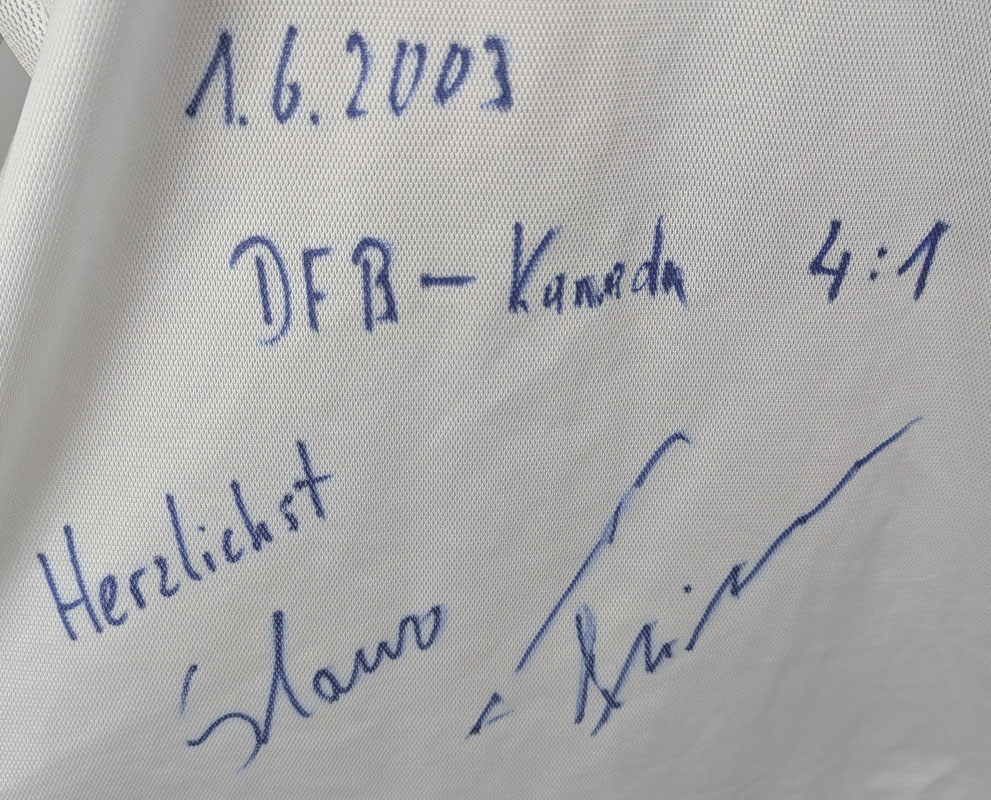 1.6.2003
DFB - Kanada 4:1
Herzlichst